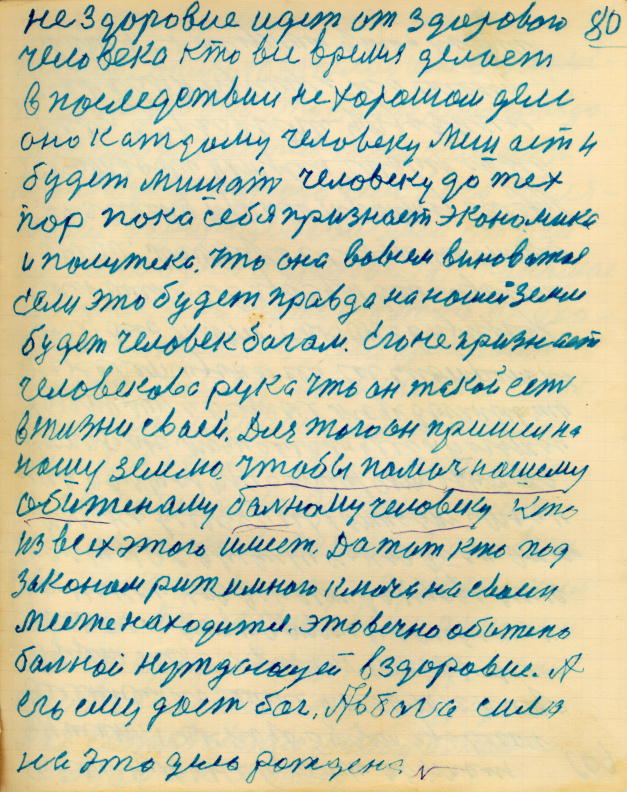 не здоровие идет от здорового 80
человека кто все время делает
в последствии не хорошои деле
оно каждому человеку мешает и
будет мишать человеку до тех
пор пока себя признает экономика
и политека. что она вовсем виноватая
если это будет правда на нашей земле
будет человек богам. его не признает
человекова рука что он такой есть
в жизни своей. Для того он пришел на
нашу землю. чтобы памоч нашему
обиженаму балному человеку. Кто
из всех этого имеет. Да тот кто под
законом режимного ключа на своем
месте находится. это вечно обижено
балной нуждающей в здоровие. А
его ему даст бог. А в бога сила
на это дело рождена